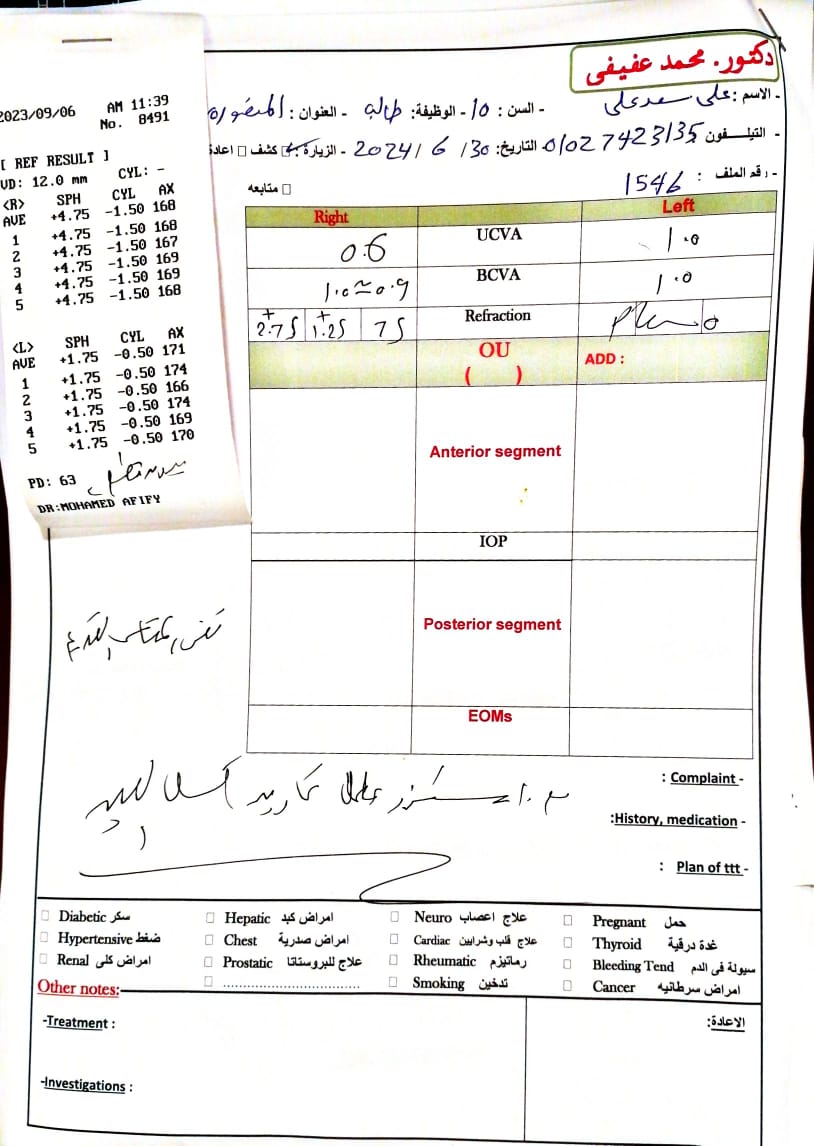 دكتور. محمد عفيفى
- الاسم : على سعد على - السن : 10 - الوظيفة: طالبة - العنوان : المنصورة
- التيلـــفون 01027423135 - التاريخ: 30 / 6 / 2024 - الزيارة: كشف □ اعادة
- رقم الملف : 1546 □ متابعه
2023/09/06 AM 11:39
No. 8491
[ REF RESULT ]
VD: 12.0 mm CYL: -
<R> SPH CYL AX
AVE +4.75 -1.50 168
1 +4.75 -1.50 168
2 +4.75 -1.50 167
3 +4.75 -1.50 169
4 +4.75 -1.50 169
5 +4.75 -1.50 168
<L> SPH CYL AX
AVE +1.75 -0.50 171
1 +1.75 -0.50 174
2 +1.75 -0.50 166
3 +1.75 -0.50 174
4 +1.75 -0.50 169
5 +1.75 -0.50 170
PD: 63
DR:MOHAMED AFIFY
Right Left
0.6 UCVA 1.0
1.0≈0.9 BCVA 1.0
+2.75 +1.25 75 Refraction Plano
OU ADD :
( )
Anterior segment
IOP
Posterior segment
EOMs
: Complaint -
:History, medication -
: Plan of ttt -
□ Diabetic سكر □ Hepatic امراض كبد □ Neuro علاج اعصاب □ Pregnant حمل
□ Hypertensive ضغط □ Chest امراض صدرية □ Cardiac علاج قلب وشرايين □ Thyroid غدة درقية
□ Renal امراض كلى □ Prostatic علاج للبروستاتا □ Rheumatic رماتيزم □ Bleeding Tend سيولة فى الدم
□ .................................. □ Smoking تدخين □ Cancer امراض سرطانيه
Other notes:
-Treatment : الاعادة:
-Investigations :